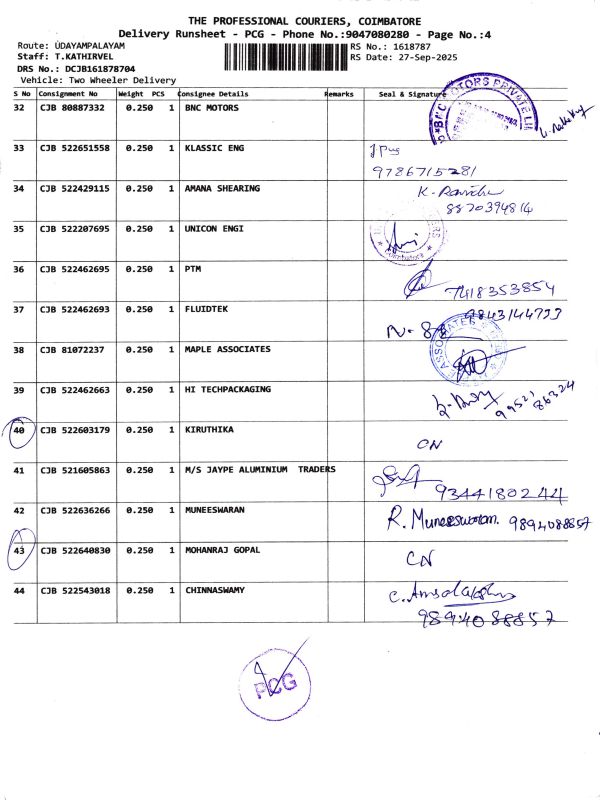 THE PROFESSIONAL COURIERS, COIMBATORE
Delivery Runsheet - PCG - Phone No.:9047080280 - Page No.:4
Route: UDAYAMPALAYAM
RS No.: 1618787
Staff: T.KATHIRVEL
RS Date: 27-Sep-2025
DRS No.: DCJB161878704
Vehicle: Two Wheeler Delivery
S No Consignment No Weight PCS Consignee Details Remarks Seal & Signature
32 CJB 80887332 0.250 1 BNC MOTORS
BNC MOTORS PRIVATE
33 CJB 522651558 0.250 1 KLASSIC ENG
9786715281
34 CJB 522429115 0.250 1 AMANA SHEARING
8870394814
35 CJB 522207695 0.250 1 UNICON ENGI
Coimbatore
36 CJB 522462695 0.250 1 PTM
7418353854
37 CJB 522462693 0.250 1 FLUIDTEK
9843144733
38 CJB 81072237 0.250 1 MAPLE ASSOCIATES
ASSOCIATES
39 CJB 522462663 0.250 1 HI TECHPACKAGING
99521 86324
40 CJB 522603179 0.250 1 KIRUTHIKA
CN
41 CJB 521605863 0.250 1 M/S JAYPE ALUMINIUM TRADERS
9344180244
42 CJB 522636266 0.250 1 MUNEESWARAN
R. Muneeswaran. 9894088857
43 CJB 522640830 0.250 1 MOHANRAJ GOPAL
CN
44 CJB 522543018 0.250 1 CHINNASWAMY
9894088857
PCG